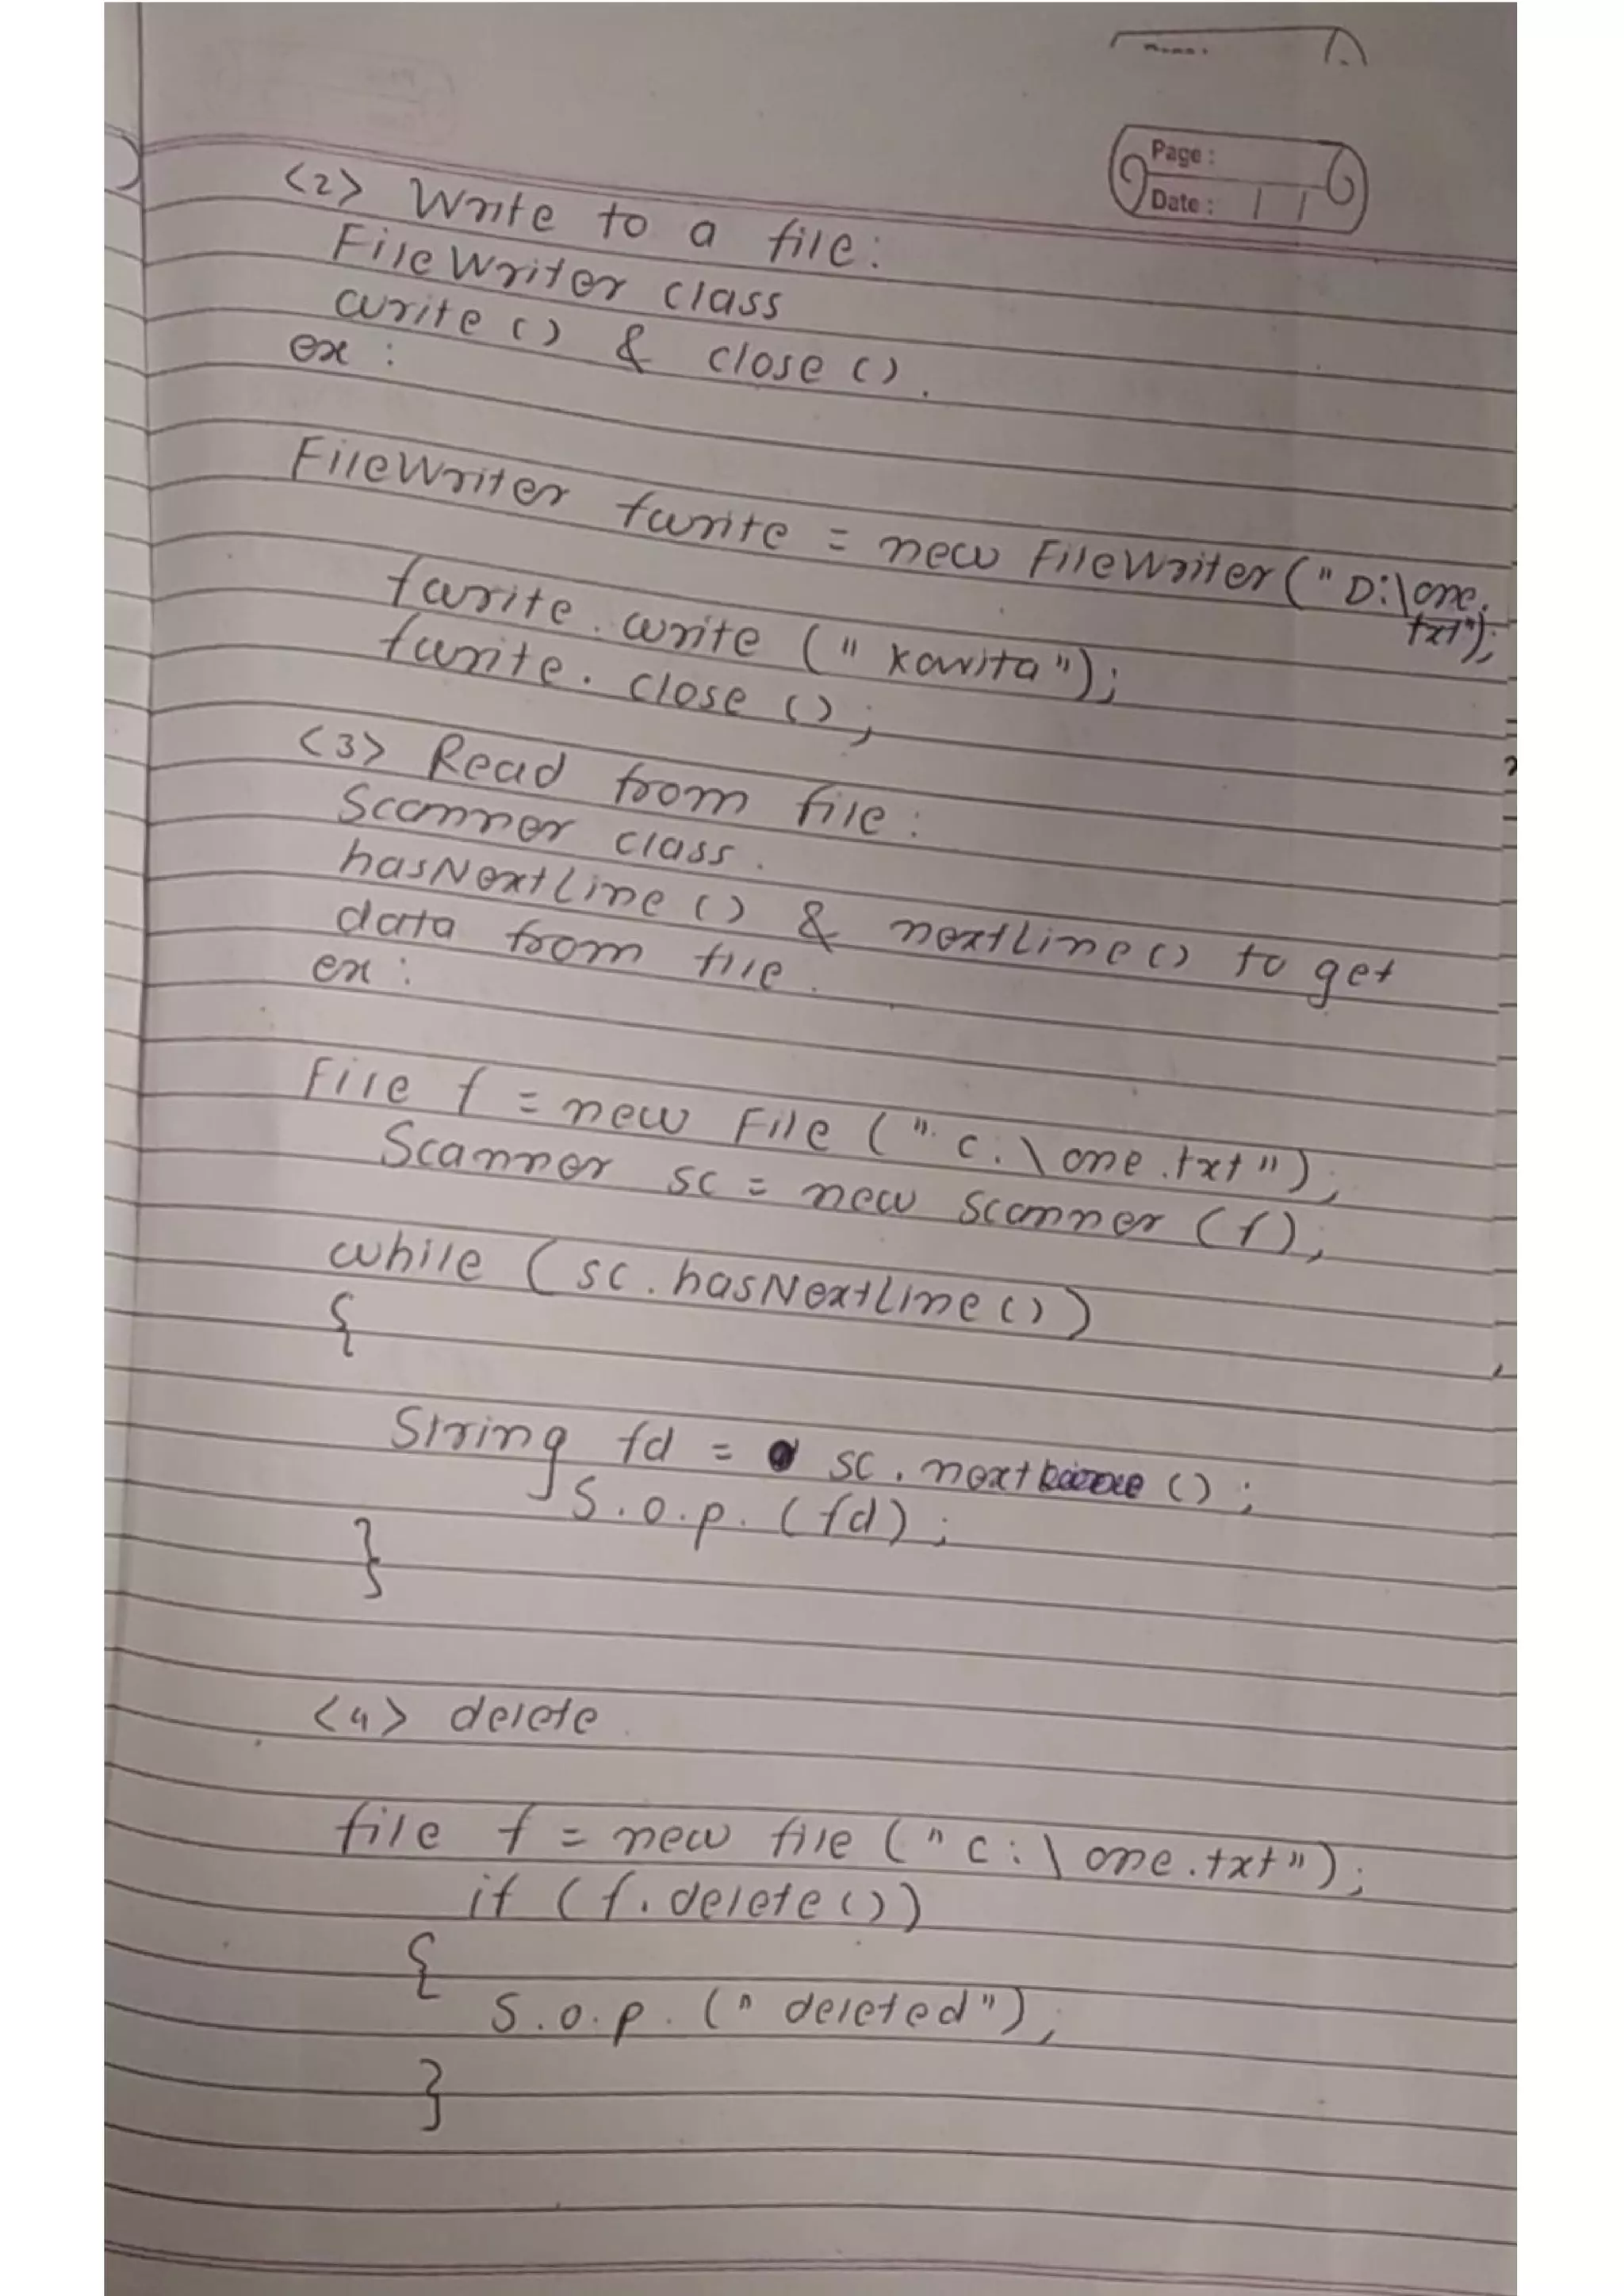 Page :
Date :
<2> Write to a file :
FileWriter class
write () & close ().
ex :
FileWriter fwrite = new FileWriter (" D:\one.
txt");
fwrite . write (" Kavita ");
fwrite . close () ;
<3> Read from file :
Scanner class .
hasNextLine () & nextLine () to get
data from file .
ex :
File f = new File (" C:\ one .txt ") ;
Scanner sc = new Scanner (f) ;
while ( sc . hasNextLine () )
{
String fd = sc . nextLine () ;
S.o.p. (fd) ;
}
<4> delete
file f = new file (" C:\ one .txt ") ;
if ( f. delete () )
{
S.o.p. (" deleted ") ;
}